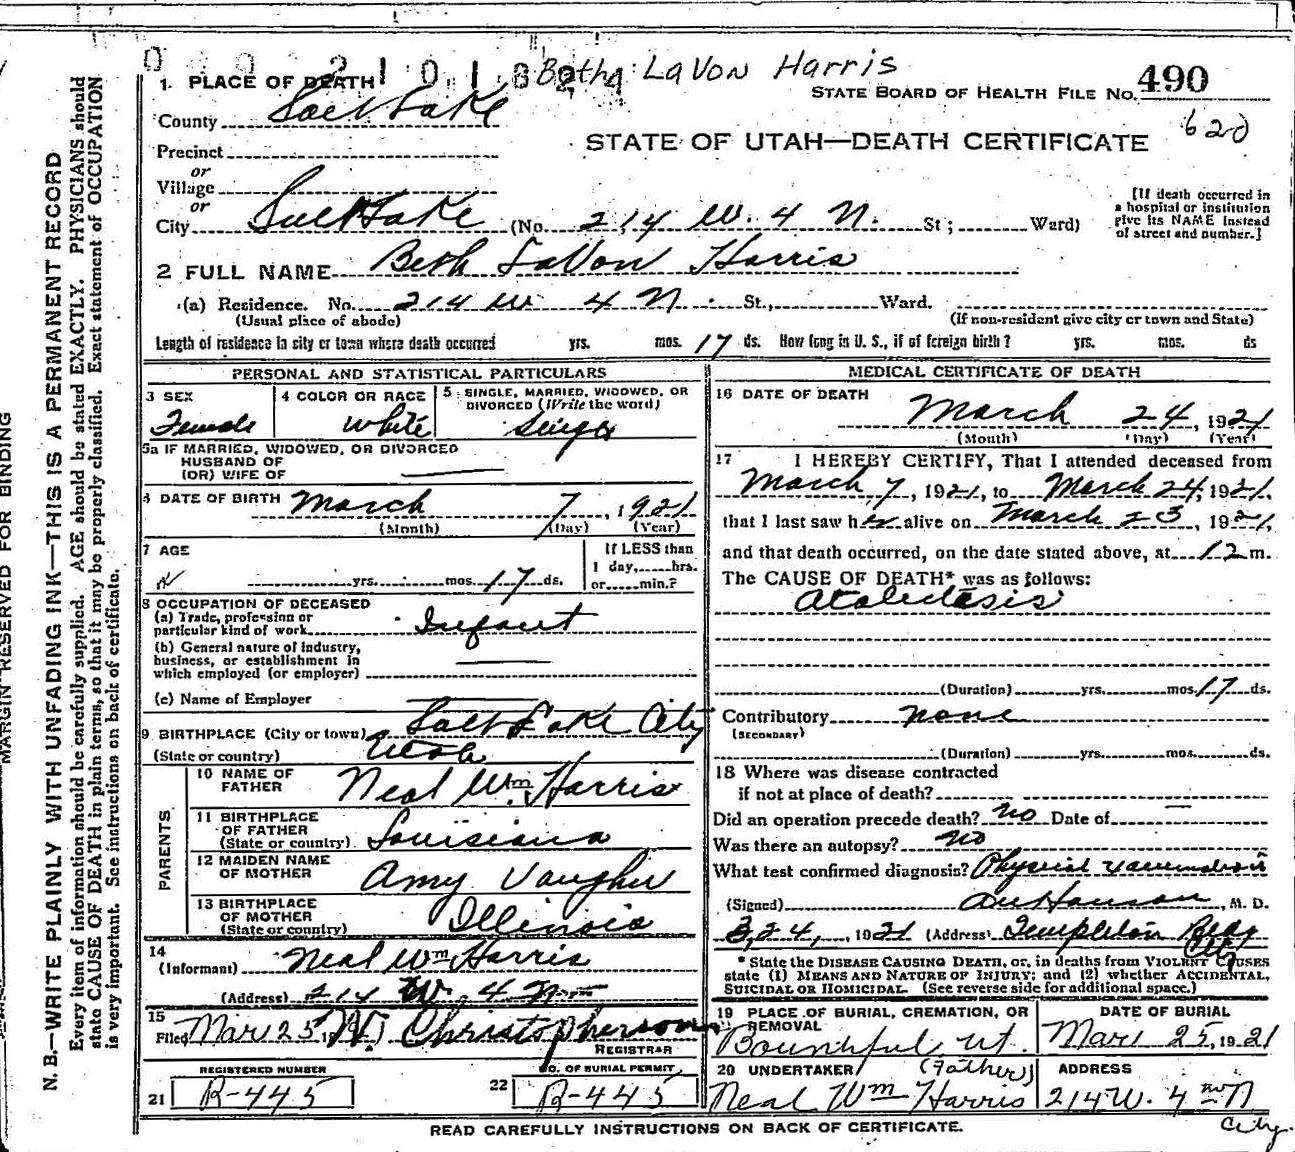 Beth LaVon Harris
1. PLACE OF DEATH
STATE BOARD OF HEALTH FILE No. 490
County Salt Lake
620
STATE OF UTAH—DEATH CERTIFICATE
Precinct
or
Village
or
City Salt Lake (No. 214 W. 4 N. St; Ward)
[If death occurred in
a hospital or institution
give its NAME instead
of street and number.]
2 FULL NAME Beth LaVon Harris
(a) Residence. No. 214 W 4 N. St., Ward.
(Usual place of abode) (If non-resident give city or town and State)
Length of residence in city or town where death occurred yrs. mos. 17 ds. How long in U. S., if of foreign birth? yrs. mos. ds
PERSONAL AND STATISTICAL PARTICULARS
3 SEX Female
4 COLOR OR RACE White
5 SINGLE, MARRIED, WIDOWED, OR
DIVORCED (Write the word)
Single
5a IF MARRIED, WIDOWED, OR DIVORCED
HUSBAND OF
(OR) WIFE OF
6 DATE OF BIRTH March 7, 1921
(Month) (Day) (Year)
7 AGE
yrs. mos. 17 ds.
If LESS than
1 day, hrs.
or min.?
8 OCCUPATION OF DECEASED
(a) Trade, profession or
particular kind of work Infant
(b) General nature of industry,
business, or establishment in
which employed (or employer)
(c) Name of Employer
9 BIRTHPLACE (City or town) Salt Lake City
(State or country) Utah
PARENTS
10 NAME OF
FATHER Neal Wm. Harris
11 BIRTHPLACE
OF FATHER
(State or country) Louisiana
12 MAIDEN NAME
OF MOTHER Amy Vaughn
13 BIRTHPLACE
OF MOTHER
(State or country) Illinois
14
(Informant) Neal Wm Harris
(Address) 214 W. 4 N
15
Filed Mar 25, 192 W. Christopherson
REGISTRAR
REGISTERED NUMBER
21 R-445
NO. OF BURIAL PERMIT
22 R-445
MEDICAL CERTIFICATE OF DEATH
16 DATE OF DEATH
March 24, 1921
(Month) (Day) (Year)
17 I HEREBY CERTIFY, That I attended deceased from
March 7, 1921, to March 24, 1921,
that I last saw her alive on March 23, 1921,
and that death occurred, on the date stated above, at 12 m.
The CAUSE OF DEATH* was as follows:
Atalectasis
(Duration) yrs. mos. 17 ds.
Contributory none
(SECONDARY)
(Duration) yrs. mos. ds.
18 Where was disease contracted
if not at place of death?
Did an operation precede death? no Date of
Was there an autopsy? no
What test confirmed diagnosis? Physical
(Signed) Hanson, M. D.
3, 24, 1921 (Address) Templeton Bldg
City
* State the DISEASE CAUSING DEATH, or, in deaths from VIOLENT CAUSES
state (1) MEANS AND NATURE OF INJURY; and (2) whether ACCIDENTAL,
SUICIDAL OR HOMICIDAL. (See reverse side for additional space.)
19 PLACE OF BURIAL, CREMATION, OR
REMOVAL
Bountiful Ut.
DATE OF BURIAL
Mar 25, 1921
20 UNDERTAKER (Father)
Neal Wm Harris
ADDRESS
214 W. 4 N
City
READ CAREFULLY INSTRUCTIONS ON BACK OF CERTIFICATE.
MARGIN RESERVED FOR BINDING
N. B.—WRITE PLAINLY WITH UNFADING INK—THIS IS A PERMANENT RECORD
Every item of information should be carefully supplied. AGE should be stated EXACTLY. PHYSICIANS should
state CAUSE OF DEATH in plain terms, so that it may be properly classified. Exact statement of OCCUPATION
is very important. See instructions on back of certificate.